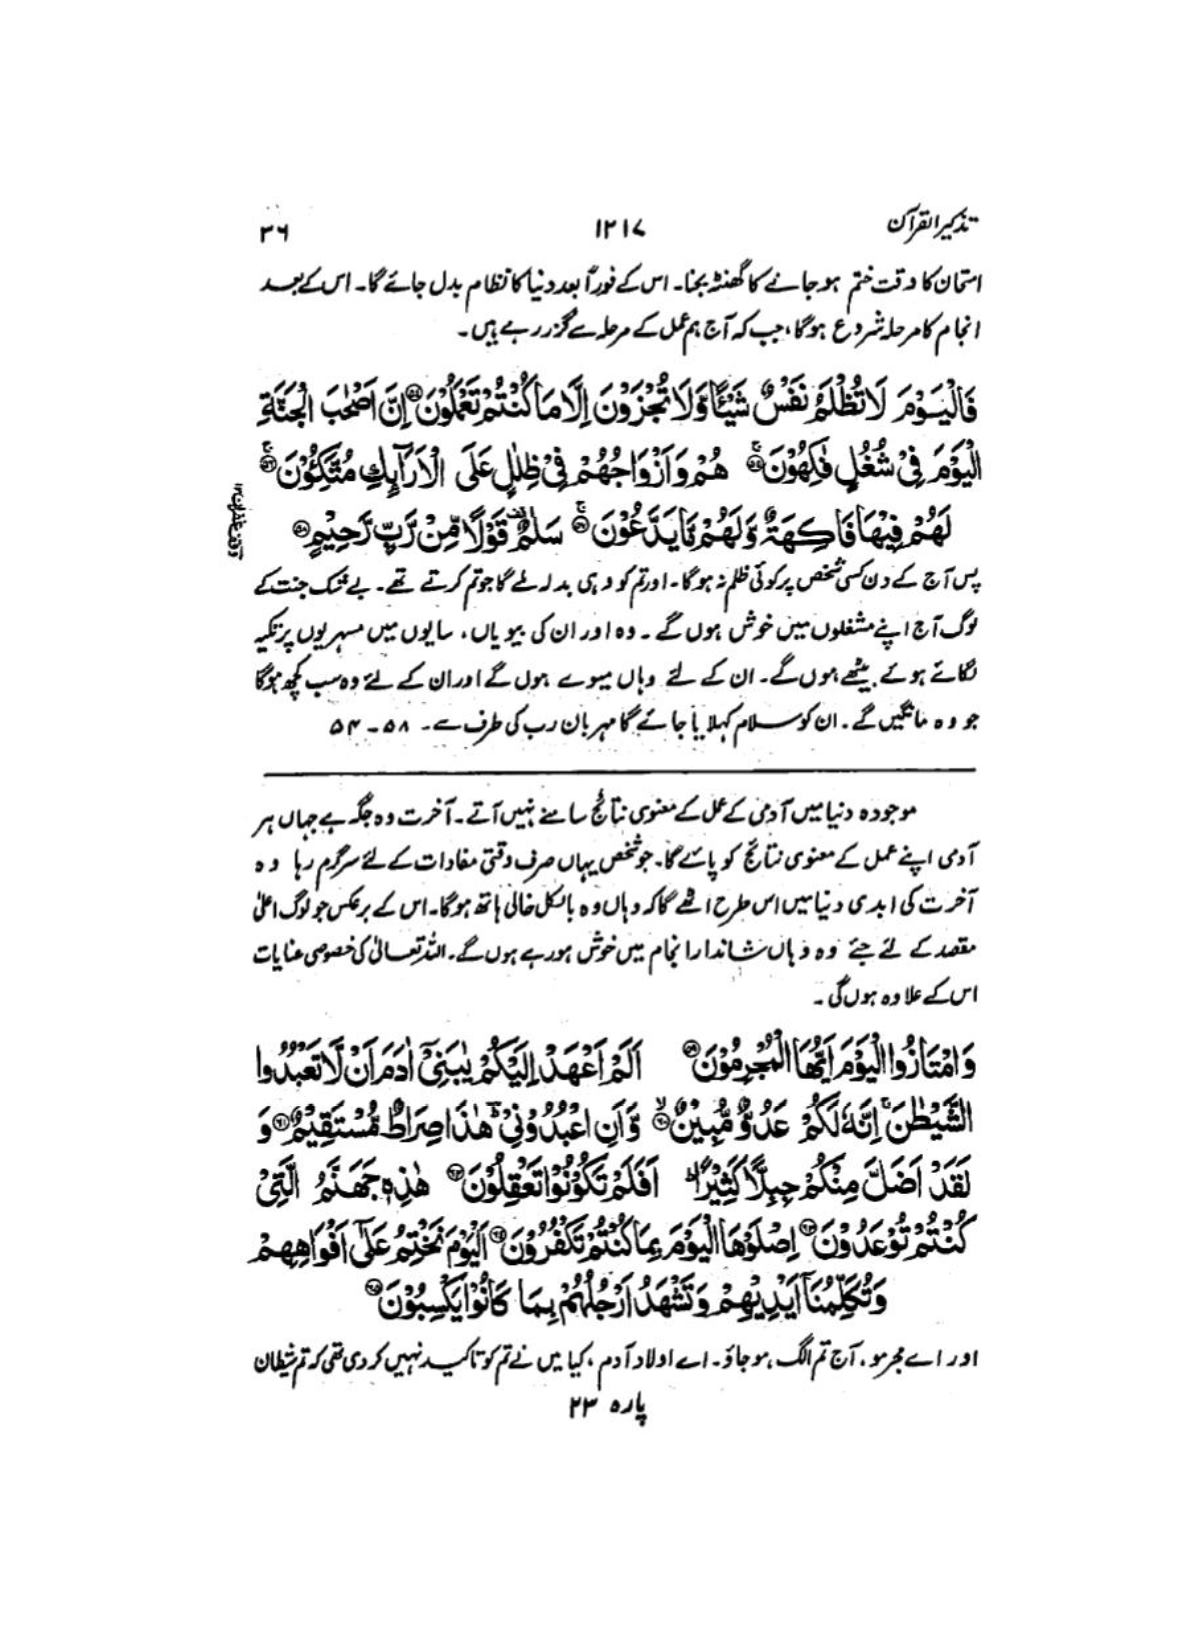 تذکیر القرآن ۱۲۱۷ ۳۶
امتحان کا وقت ختم ہوجانے کا گھنٹہ بجنا۔ اس کے فوراً بعد دنیا کا نظام بدل جائے گا۔ اس کے بعد
انجام کا مرحلہ شروع ہوگا، جب کہ آج ہم عمل کے مرحلہ سے گزر رہے ہیں۔
فَالْيَوْمَ لَا تُظْلَمُ نَفْسٌ شَيْئًا وَّلَا تُجْزَوْنَ اِلَّا مَا كُنْتُمْ تَعْمَلُوْنَ ۝۵۴ اِنَّ اَصْحٰبَ الْجَنَّةِ
الْيَوْمَ فِيْ شُغُلٍ فٰكِهُوْنَ ۝۵۵ۚ هُمْ وَاَزْوَاجُهُمْ فِيْ ظِلٰلٍ عَلَى الْاَرَآىِٕكِ مُتَّكِـُٔوْنَ ۝۵۶ۚ
لَهُمْ فِيْهَا فَاكِهَةٌ وَّلَهُمْ مَّا يَدَّعُوْنَ ۝۵۷ۚ سَلٰمٌ ۣ قَوْلًا مِّنْ رَّبٍّ رَّحِيْمٍ ۝۵۸
پس آج کے دن کسی شخص پر کوئی ظلم نہ ہوگا۔ اور تم کو وہی بدلہ ملے گا جو تم کرتے تھے۔ بے شک جنت کے
لوگ آج اپنے مشغلوں میں خوش ہوں گے۔ وہ اور ان کی بیویاں، سایوں میں مسہریوں پر تکیہ
لگائے ہوئے بیٹھے ہوں گے۔ ان کے لئے وہاں میوے ہوں گے اور ان کے لئے وہ سب کچھ ہوگا
جو وہ مانگیں گے۔ ان کو سلام کہلایا جائے گا مہربان رب کی طرف سے۔ ۵۸۔۵۴
موجودہ دنیا میں آدمی کے عمل کے معنوی نتائج سامنے نہیں آتے۔ آخرت وہ جگہ ہے جہاں ہر
آدمی اپنے عمل کے معنوی نتائج کو پائے گا۔ جو شخص یہاں صرف وقتی مفادات کے لئے سرگرم رہا وہ
آخرت کی ابدی دنیا میں اس طرح اٹھے گا کہ وہاں وہ بالکل خالی ہاتھ ہوگا۔ اس کے برعکس جو لوگ اعلیٰ
مقصد کے لئے جئے وہ وہاں شاندار انجام میں خوش ہو رہے ہوں گے۔ اللہ تعالیٰ کی خصوصی عنایات
اس کے علاوہ ہوں گی۔
وَامْتَازُوا الْيَوْمَ اَيُّهَا الْمُجْرِمُوْنَ ۝۵۹ اَلَمْ اَعْهَدْ اِلَيْكُمْ يٰبَنِيْٓ اٰدَمَ اَنْ لَّا تَعْبُدُوا
الشَّيْطٰنَ ۚ اِنَّهٗ لَكُمْ عَدُوٌّ مُّبِيْنٌ ۝۶۰ۙ وَّاَنِ اعْبُدُوْنِيْ ؔ هٰذَا صِرَاطٌ مُّسْتَقِيْمٌ ۝۶۱ وَ
لَقَدْ اَضَلَّ مِنْكُمْ جِبِلًّا كَثِيْرًا ؕ اَفَلَمْ تَكُوْنُوْا تَعْقِلُوْنَ ۝۶۲ هٰذِهٖ جَهَنَّمُ الَّتِيْ
كُنْتُمْ تُوْعَدُوْنَ ۝۶۳ اِصْلَوْهَا الْيَوْمَ بِمَا كُنْتُمْ تَكْفُرُوْنَ ۝۶۴ اَلْيَوْمَ نَخْتِمُ عَلٰٓى اَفْوَاهِهِمْ
وَتُكَلِّمُنَآ اَيْدِيْهِمْ وَتَشْهَدُ اَرْجُلُهُمْ بِمَا كَانُوْا يَكْسِبُوْنَ ۝۶۵
اور اے مجرمو، آج تم الگ ہو جاؤ۔ اے اولاد آدم، کیا میں نے تم کو تاکید نہیں کر دی تھی کہ تم شیطان
پارہ ۲۳